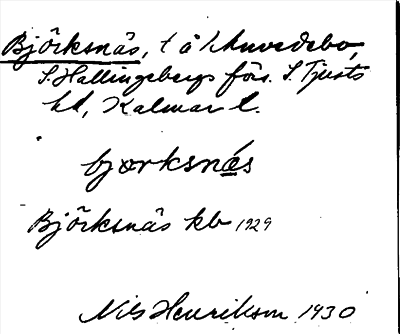 Björksnäs, t å Hu​vedebo,
S. Hallingebergs förs. S. Tjusts
hd, Kalmar l.
bjorksnás
Björksnäs kb 1929
Nils Henrikson 1930